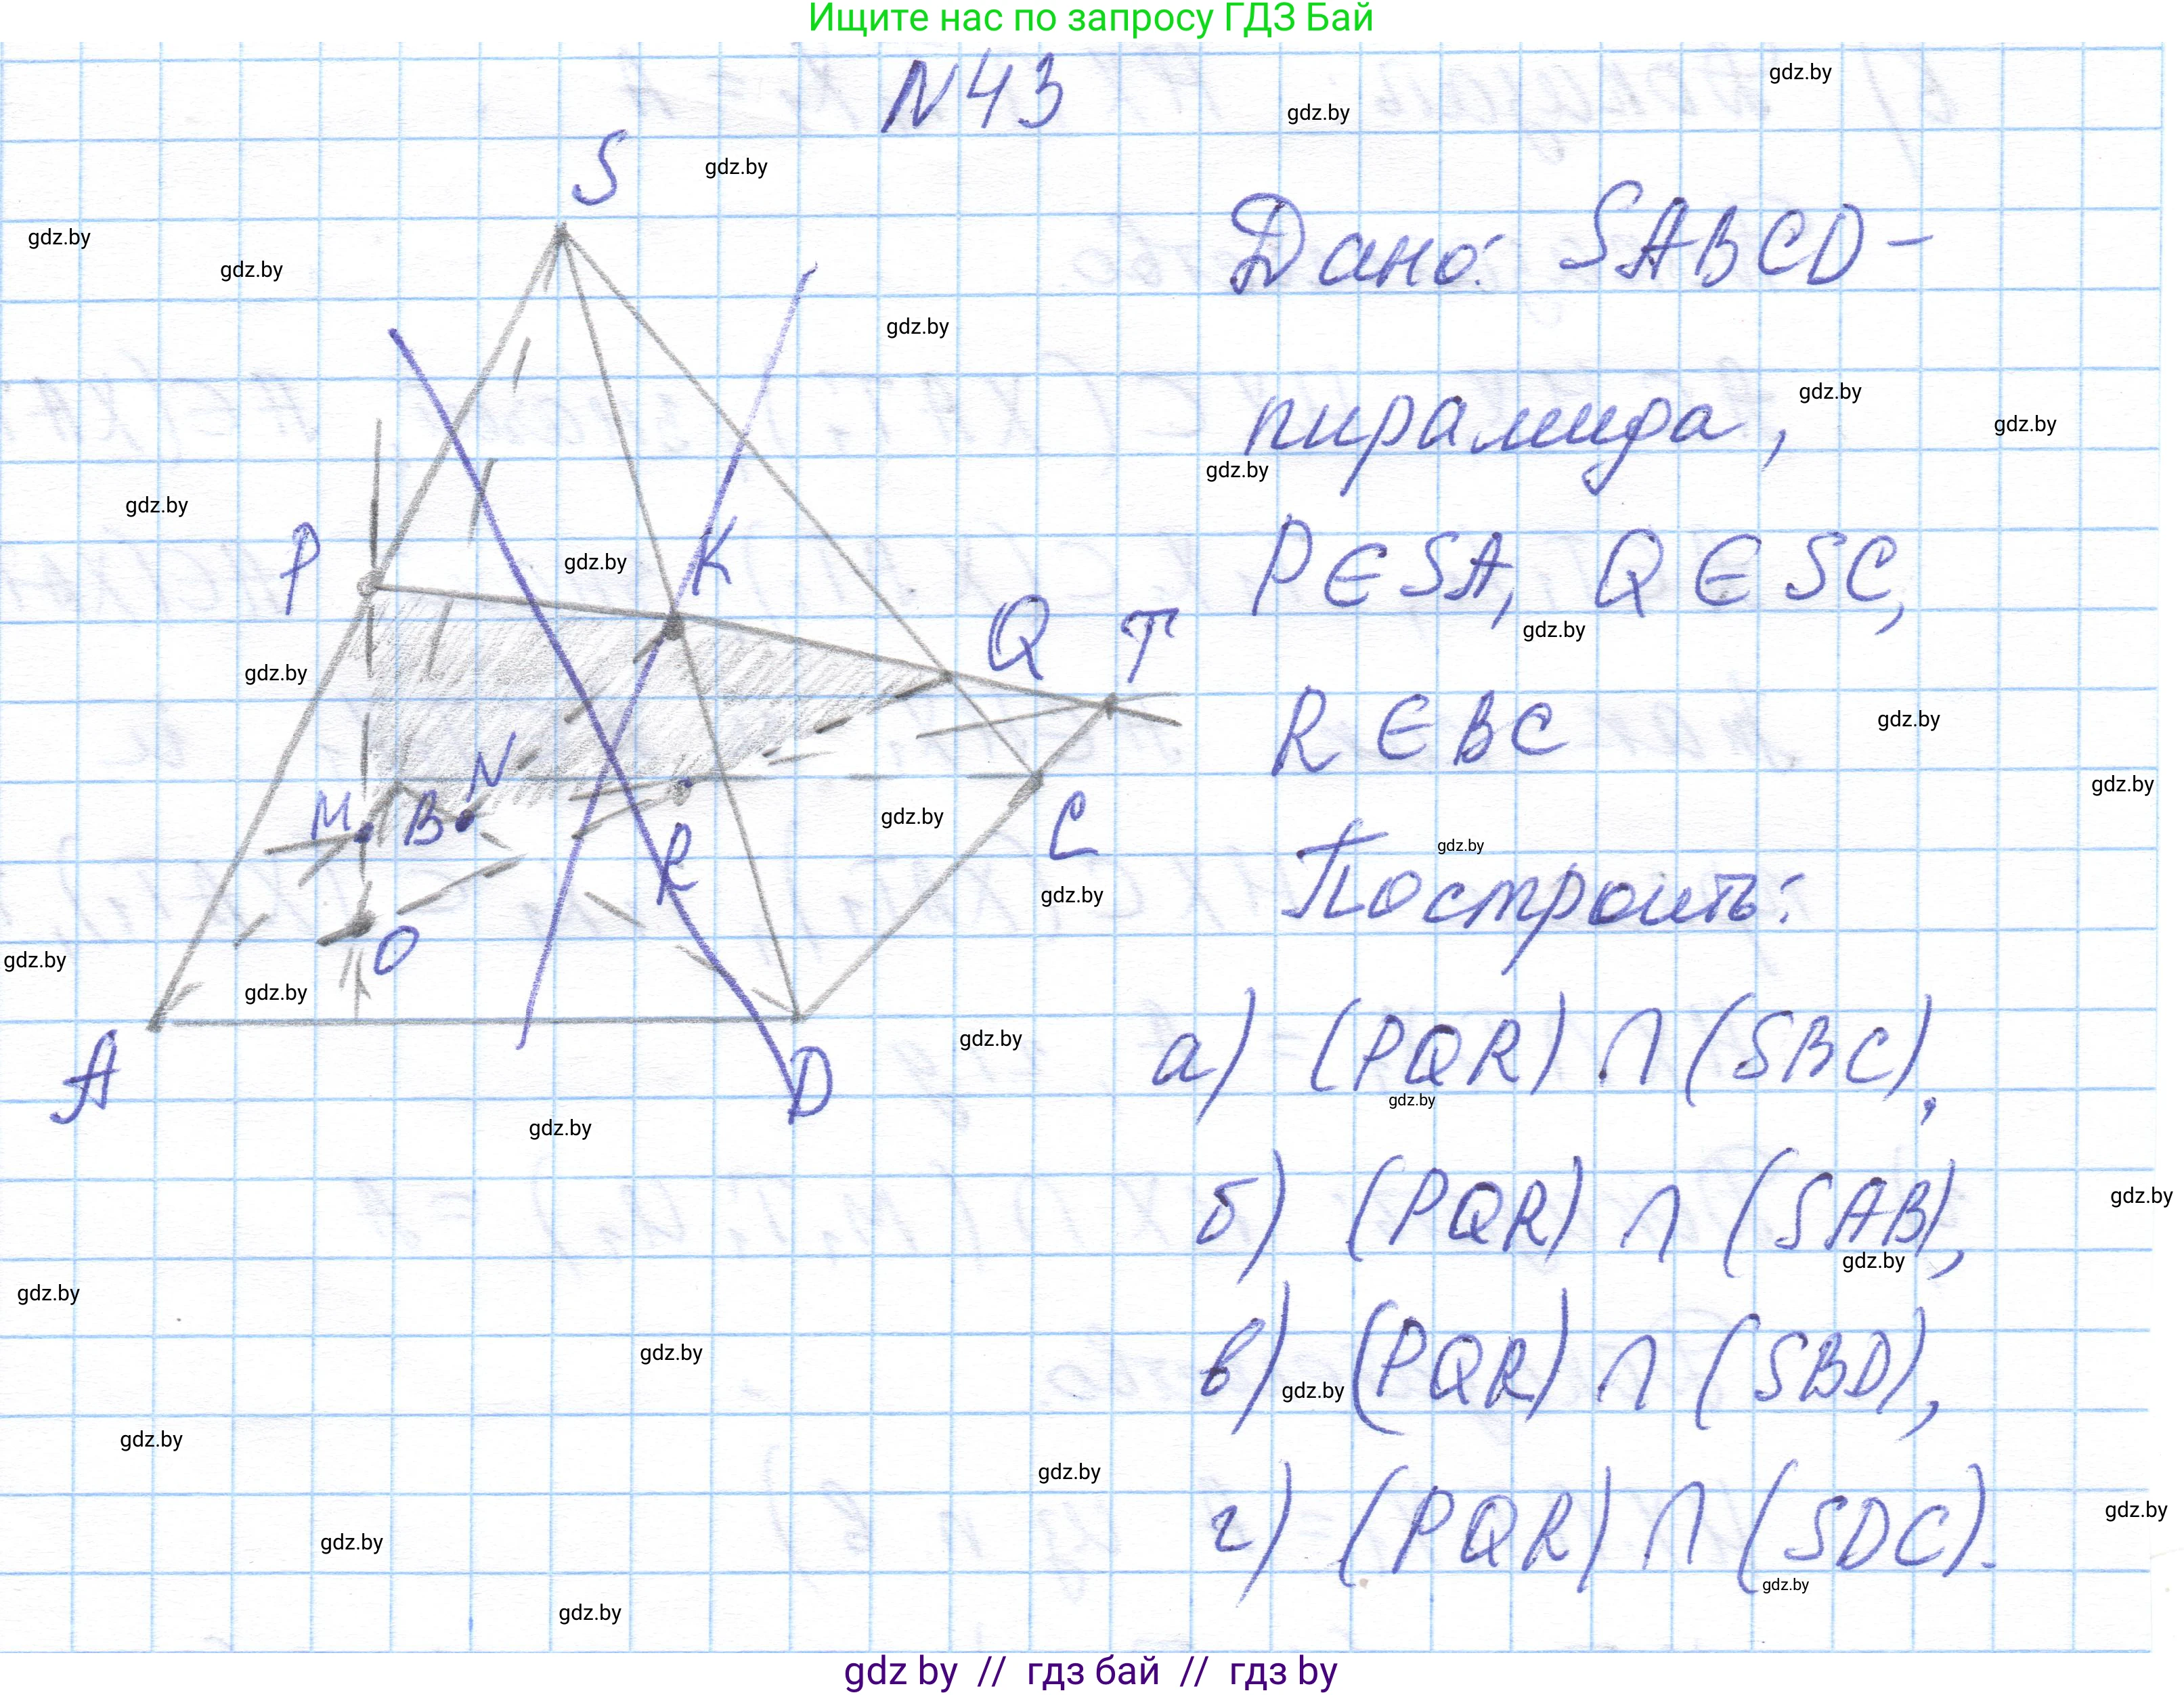 Ищите нас по запросу ГДЗ Бай
N43
gdz.by
gdz.by
gdz.by
S
Дано: SABCD-
gdz.by
gdz.by
gdz.by
пирамида,
gdz.by
gdz.by
gdz.by
gdz.by
P
gdz.by
K
P∈SA, Q∈SC,
Q T
gdz.by
gdz.by
R∈BC
gdz.by
N
gdz.by
M B
gdz.by
C
R
Построить:
gdz.by
gdz.by
O
gdz.by
gdz.by
A
D
gdz.by
а) (PQR)∩(SBC),
gdz.by
gdz.by
б) (PQR)∩(SAB),
gdz.by
gdz.by
gdz.by
в) (PQR)∩(SBD),
gdz.by
gdz.by
gdz.by
gdz.by
г) (PQR)∩(SDC).
gdz.by
gdz.by
gdz.by
gdz.by
gdz by // гдз бай // гдз by